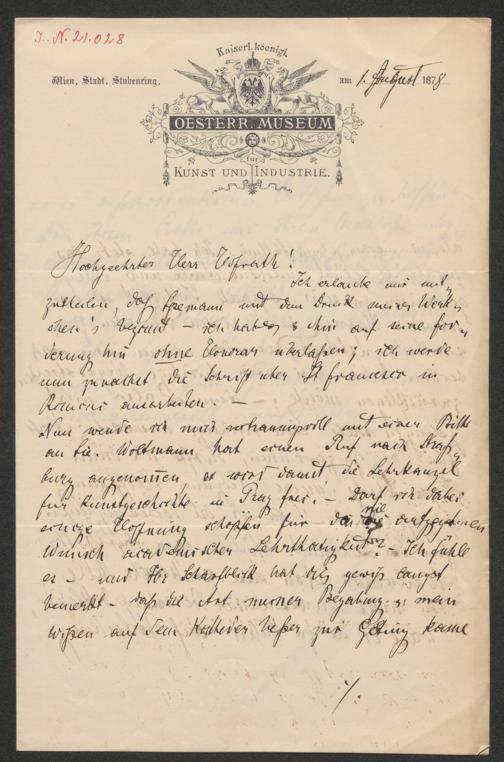 I. N. 21.028
Kaiserl. koenigl.
Wien, Stadt, Stubenring.
am 1. August 1878
OESTERR. MUSEUM
für
KUNST UND INDUSTRIE.
Hochgeehrter Herr Hofrath!
Ich erlaube mir mit-
zutheilen, daß Spemann mit dem Druck meines Werk-
chen's beginnt – ich habe es ihm auf seine For-
derung hin ohne Honorar überlassen; ich werde
nun zunächst die Schrift über St Francesco in
Rimini ausarbeiten. –
Nun wende ich mich vertrauungsvoll mit einer Bitte
an Sie. Woltmann hat einen Ruf nach Straß-
burg angenommen, es wird damit die Lehrkanzel
für Kunstgeschichte in Prag frei. – Darf ich dabei
einige Hoffnung schöpfen für den
Wunsch academischer Lehrthätigkeit? – Ich fühle
es – und Ihr Scharfblick hat dieß gewiß längst
bemerkt – daß die Art meiner Begabung u. mein
Wissen auf dem Katheder besser zur Geltung käme
./.